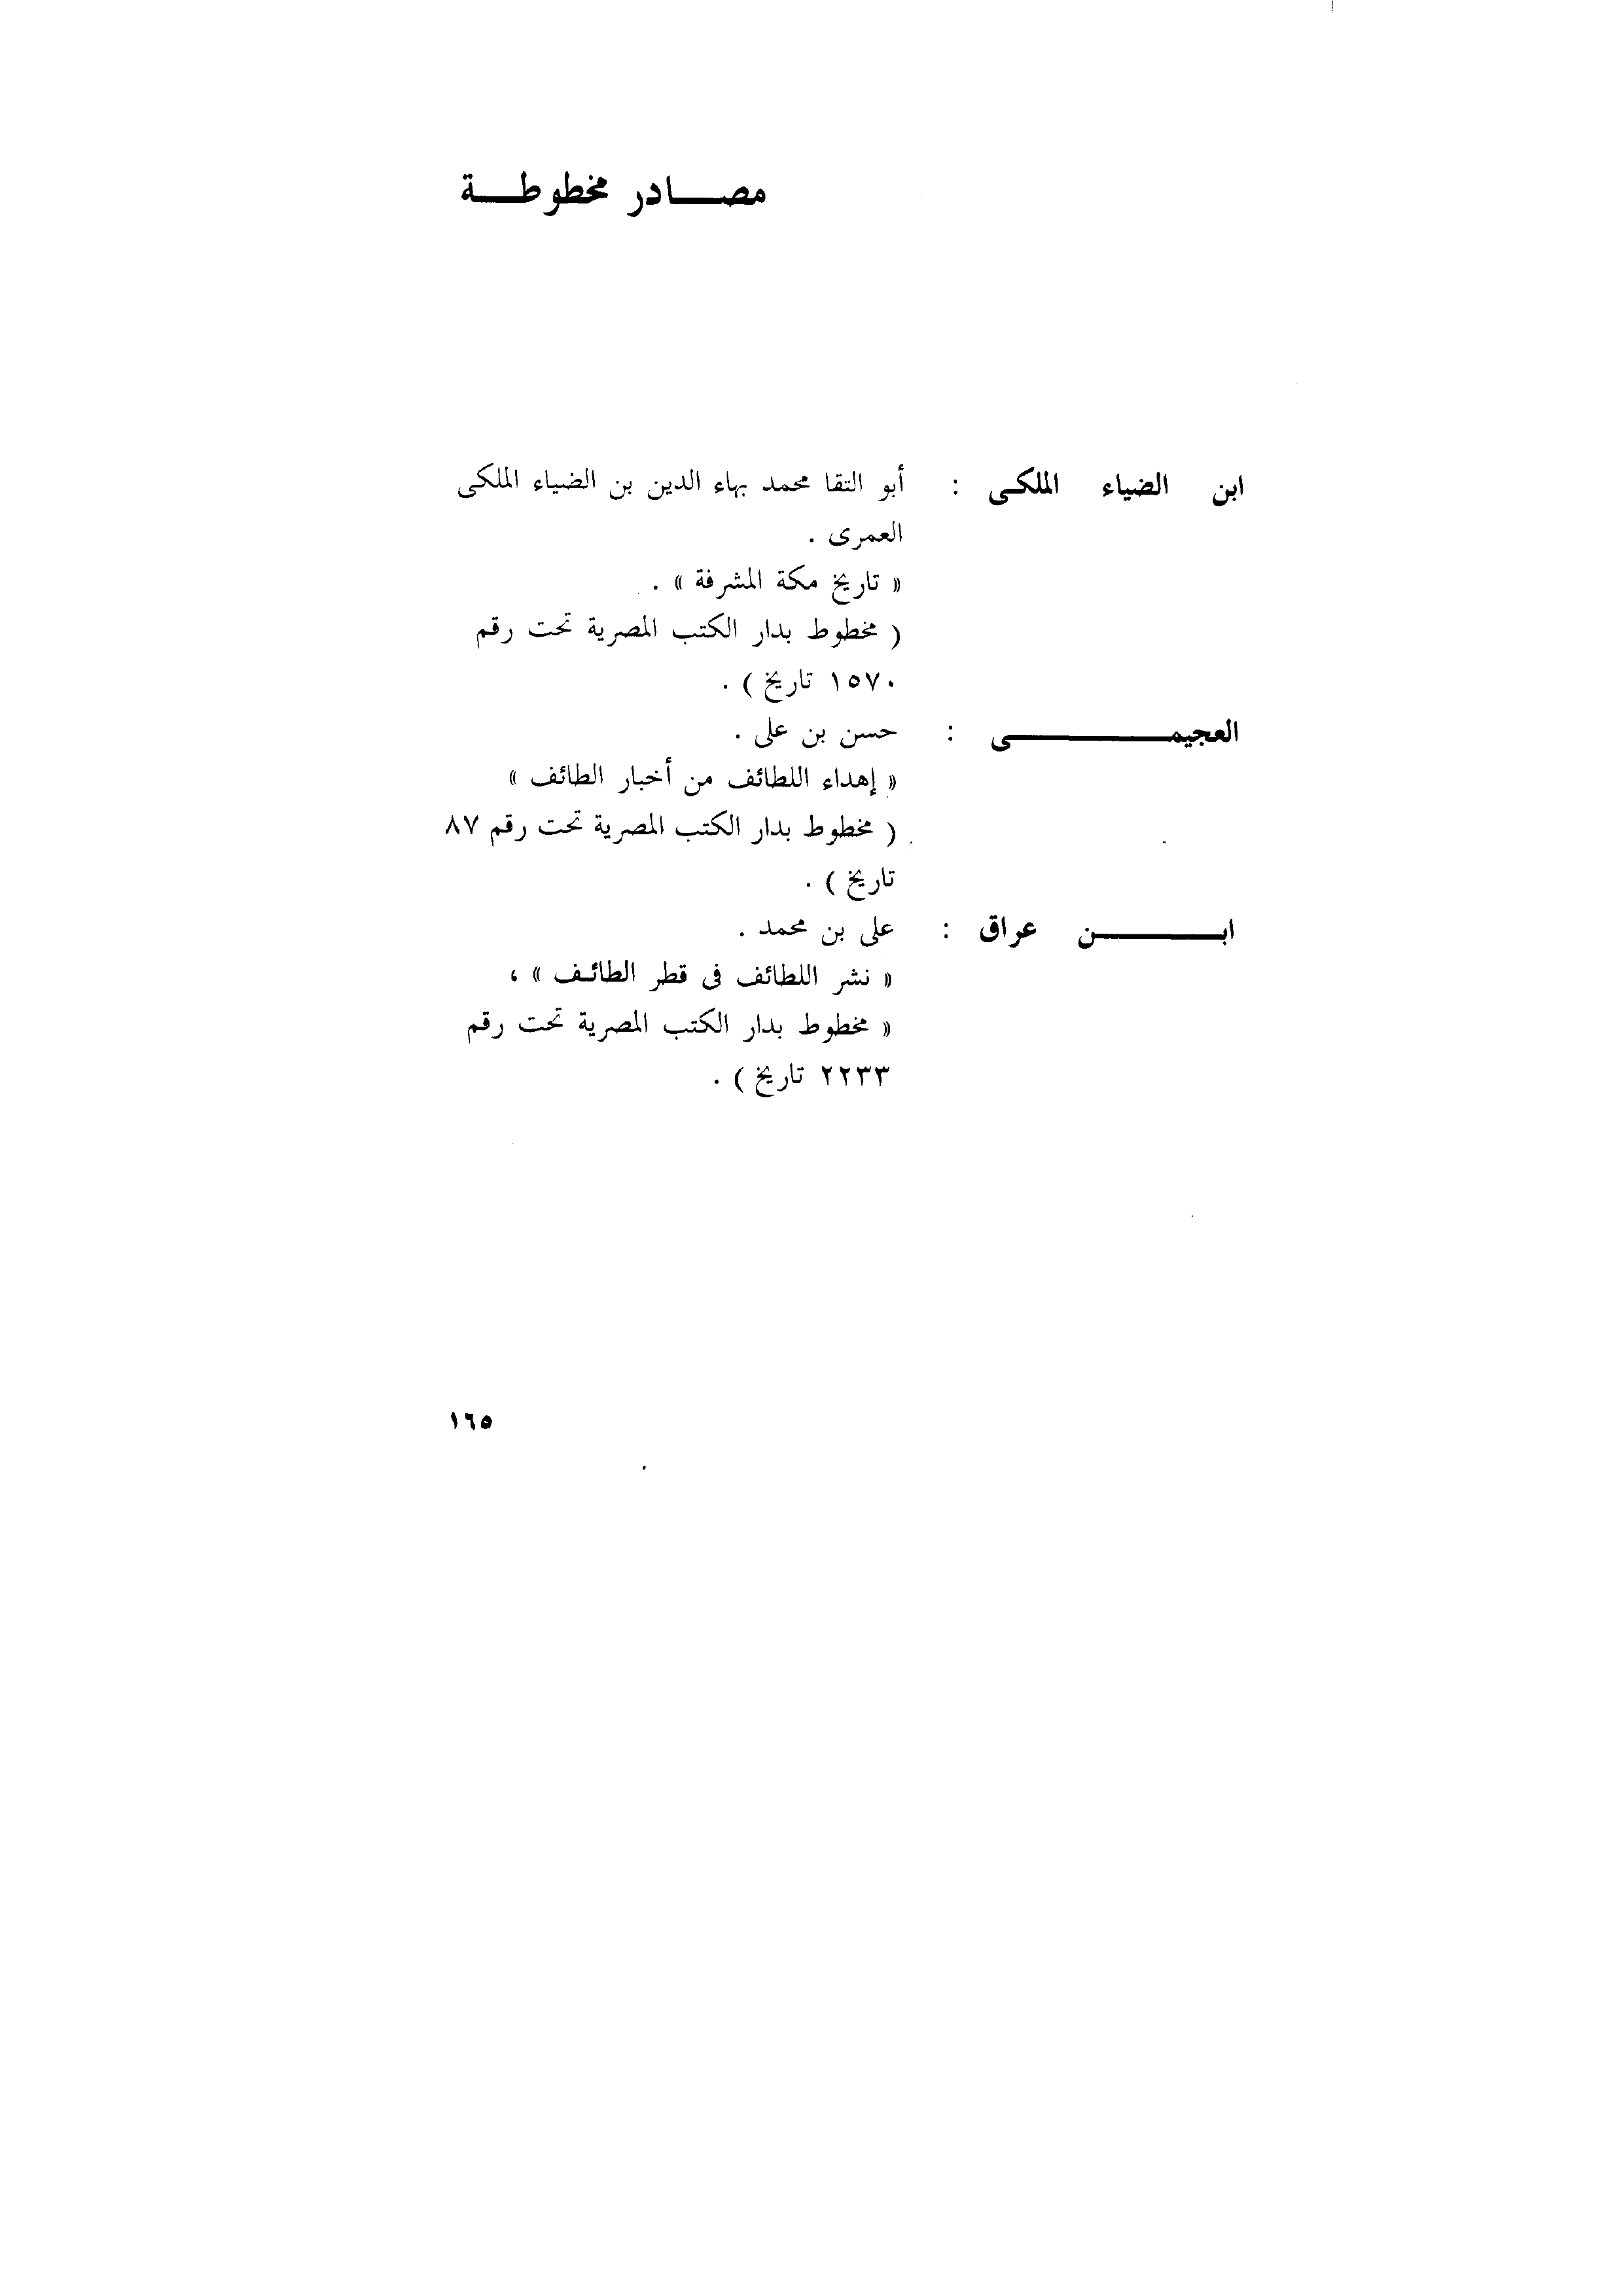 مصادر مخطوطة
ابن الضياء الملكى : أبو التقا محمد بهاء الدين بن الضياء الملكى
العمرى .
« تاريخ مكة المشرفة » .
( مخطوط بدار الكتب المصرية تحت رقم
١٥٧٠ تاريخ ) .
العجيمى : حسن بن على .
« إهداء اللطائف من أخبار الطائف »
( مخطوط بدار الكتب المصرية تحت رقم ٨٧
تاريخ ) .
ابن عراق : على بن محمد .
« نشر اللطائف فى قطر الطائف » ،
« مخطوط بدار الكتب المصرية تحت رقم
٢٢٣٣ تاريخ ) .
١٦٥